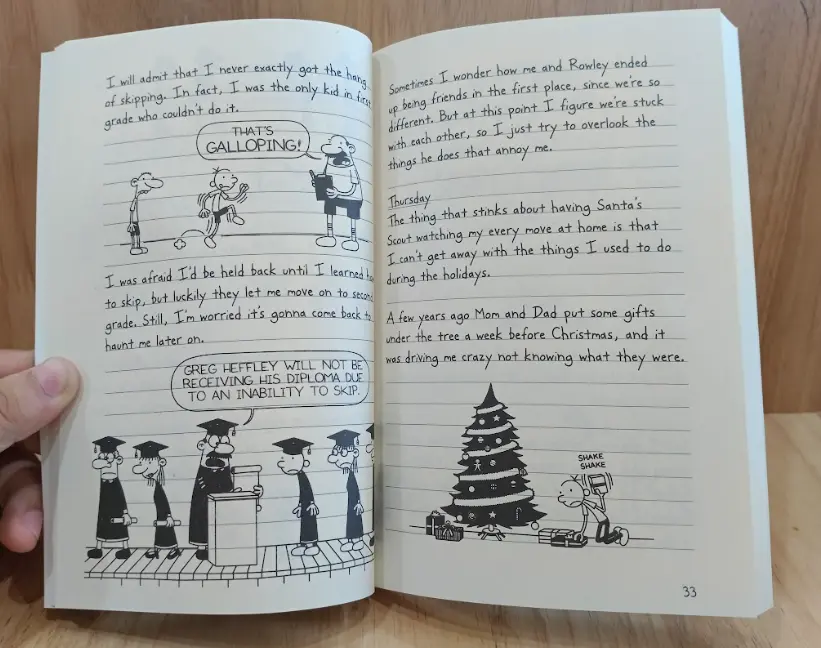 I will admit that I never exactly got the hang
of skipping. In fact, I was the only kid in first
grade who couldn't do it.
THAT'S
GALLOPING!
I was afraid I'd be held back until I learned
to skip, but luckily they let me move on to second
grade. Still, I'm worried it's gonna come back to
haunt me later on.
GREG HEFFLEY WILL NOT BE
RECEIVING HIS DIPLOMA DUE
TO AN INABILITY TO SKIP.
Sometimes I wonder how me and Rowley ended
up being friends in the first place, since we're so
different. But at this point I figure we're stuck
with each other, so I just try to overlook the
things he does that annoy me.
Thursday
The thing that stinks about having Santa's
Scout watching my every move at home is that
I can't get away with the things I used to do
during the holidays.
A few years ago Mom and Dad put some gifts
under the tree a week before Christmas, and it
was driving me crazy not knowing what they were.
SHAKE
SHAKE
33